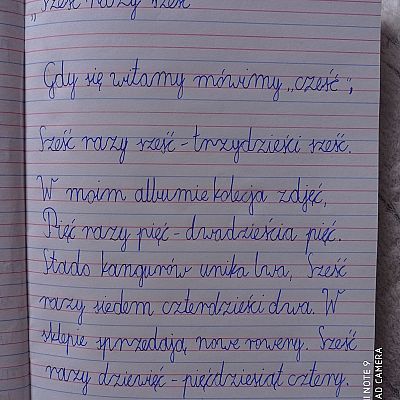 „Sześć razy sześć"
Gdy się witamy mówimy „cześć",
Sześć razy sześć - trzydzieści sześć.
W moim albumie kolecja zdjęć,
Pięć razy pięć - dwadzieścia pięć.
Stado kangurów unika lwa, Sześć
razy siedem czterdzieści dwa. W
sklepie sprzedają, nowe rowery. Sześć
razy dziewięć - pięćdziesiąt cztery.
I NOTE 9
AD CAMERA